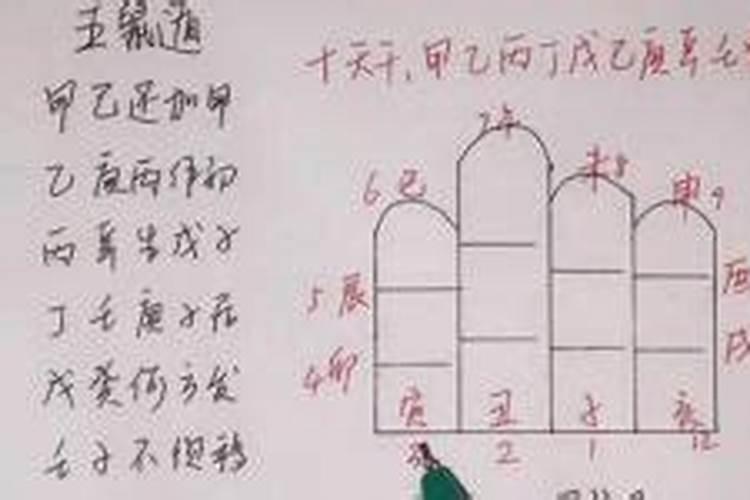 五鼠遁
甲己还加甲
乙庚丙作初
丙辛生戊子
丁壬庚子居
戊癸何方发
壬子不须移
十天干,甲乙丙丁戊己庚辛壬
7午
6巳
未8
申9
5辰
酉
4卯
戌
寅 丑 子 亥
3 2 1 12